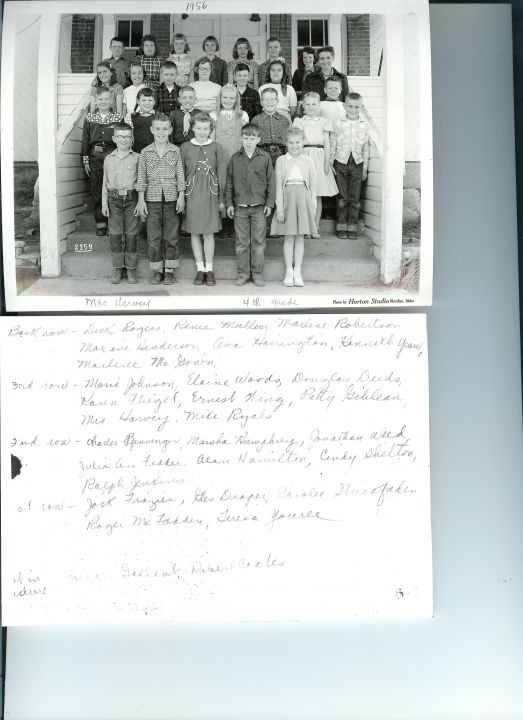 1956
2854
Mrs Harvey 4th grade Photo by Horton Studio Meridian, Idaho
Back row - Dick Rogers, Renee Mullen, Marlene Robertson
Maxine Henderson, Ava Harrington, Kenneth
Marlene Mc Gown,
3rd row - Marie Johnson, Elaine Woods, Douglas Deids,
Karen Fleigel, Ernest King, Patty Gibbean,
Mrs Harvey. Mike Ryals
2nd row - Charles Pfenninger, Marsha Humphrey, Jonathan Weed
Julia Ann Fedder, Alan Hamilton, Cindy Shelton,
Ralph Jenkins
1st row - Jack Frazier, Glen Draper, Carolee
Roger Mc Fadden, Teresa Youree
Gallent, Robert Coates